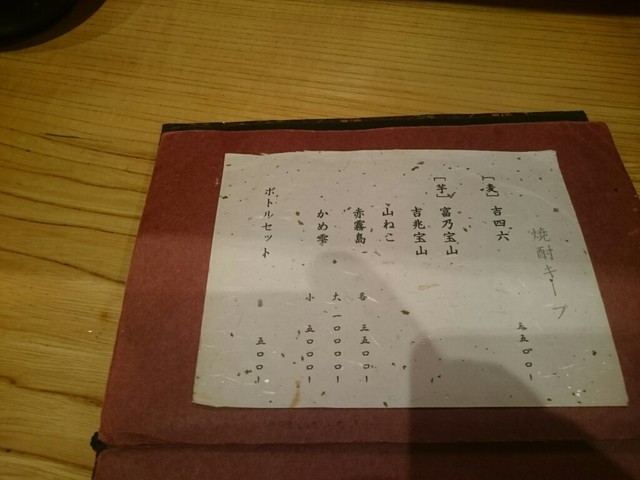 焼酎キープ
[麦] 吉四六 三五〇〇ー
[芋] 富乃宝山
吉兆宝山
山ねこ
赤霧島 各 三五〇〇ー
かめ雫 大 一〇〇〇〇ー
小 五〇〇〇ー
ボトルセット 五〇〇ー